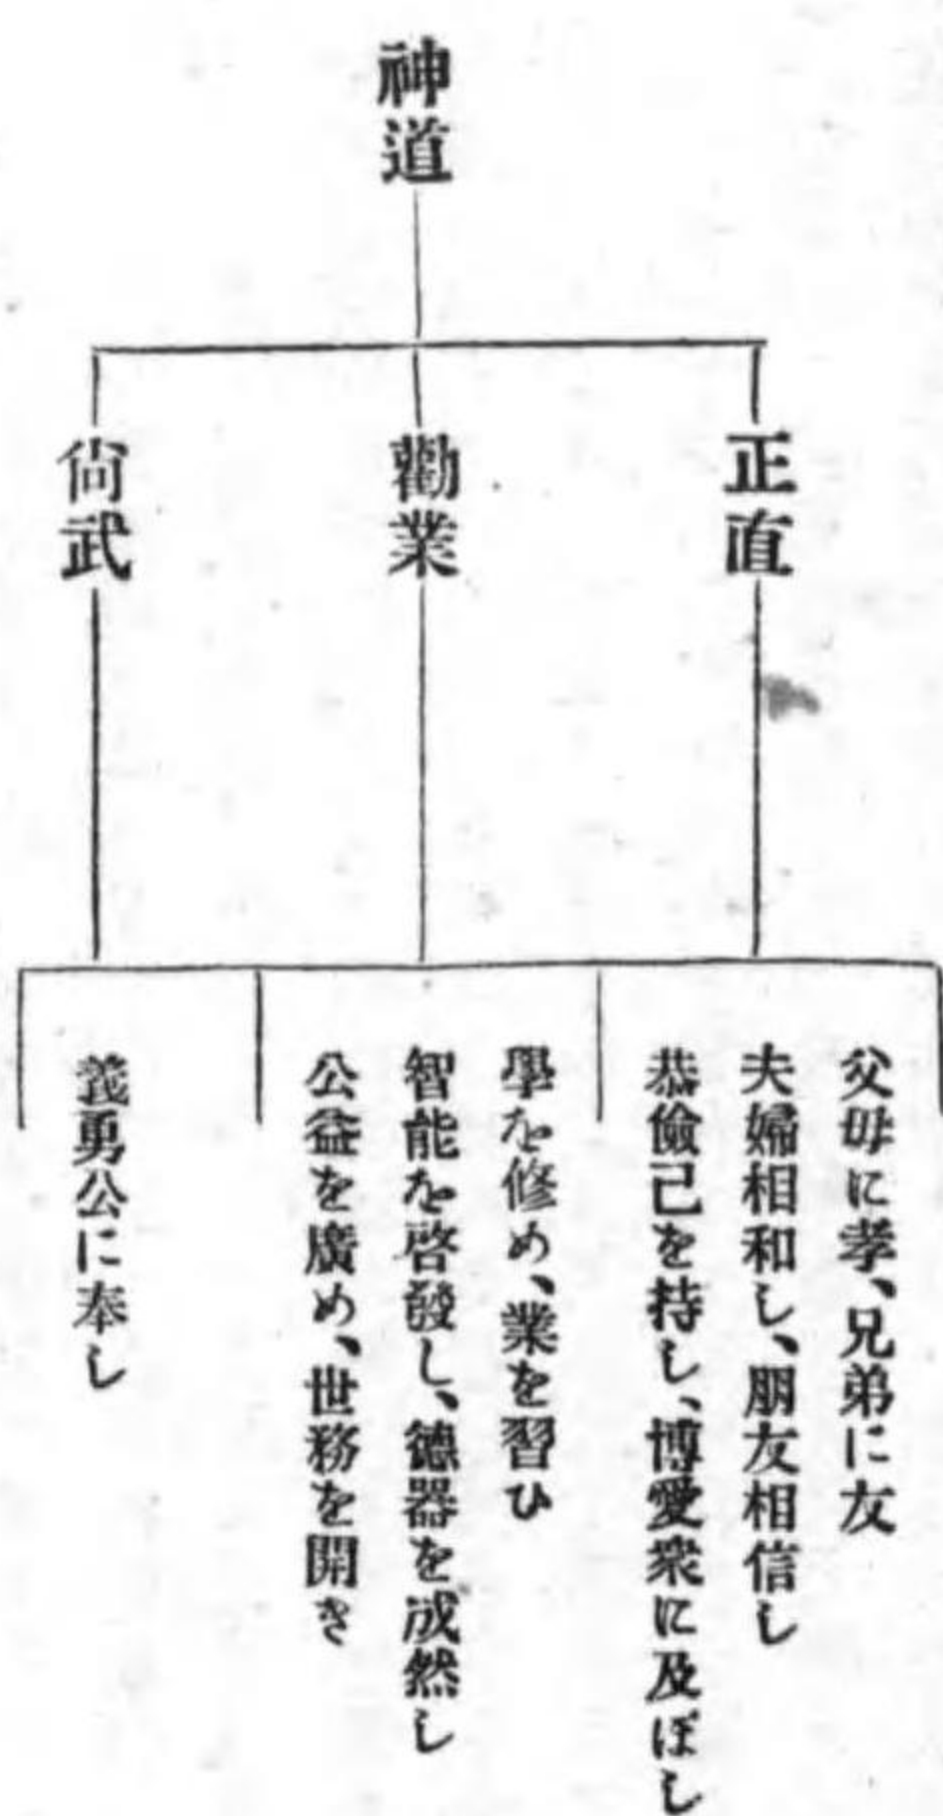 神道
正直
勸業
尙武
父母に孝、兄弟に友
夫婦相和し、朋友相信し
恭儉己を持し、博愛衆に及ぼし
學を修め、業を習ひ
智能を啓發し、德器を成然し
公益を廣め、世務を開き
義勇公に奉し